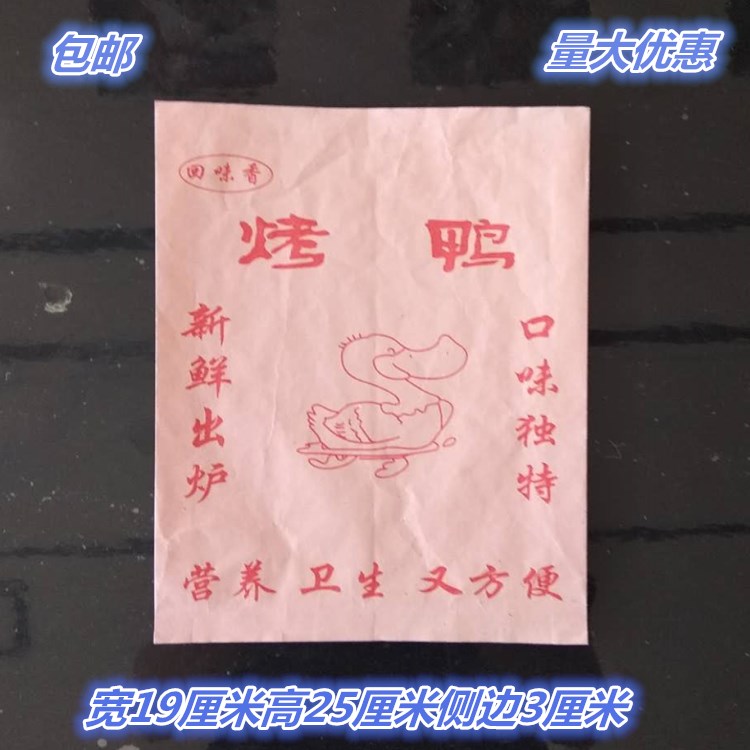 包邮
量大优惠
回味香
烤 鸭
新鲜出炉
口味独特
营养 卫生 又方便
宽19厘米高25厘米侧边3厘米